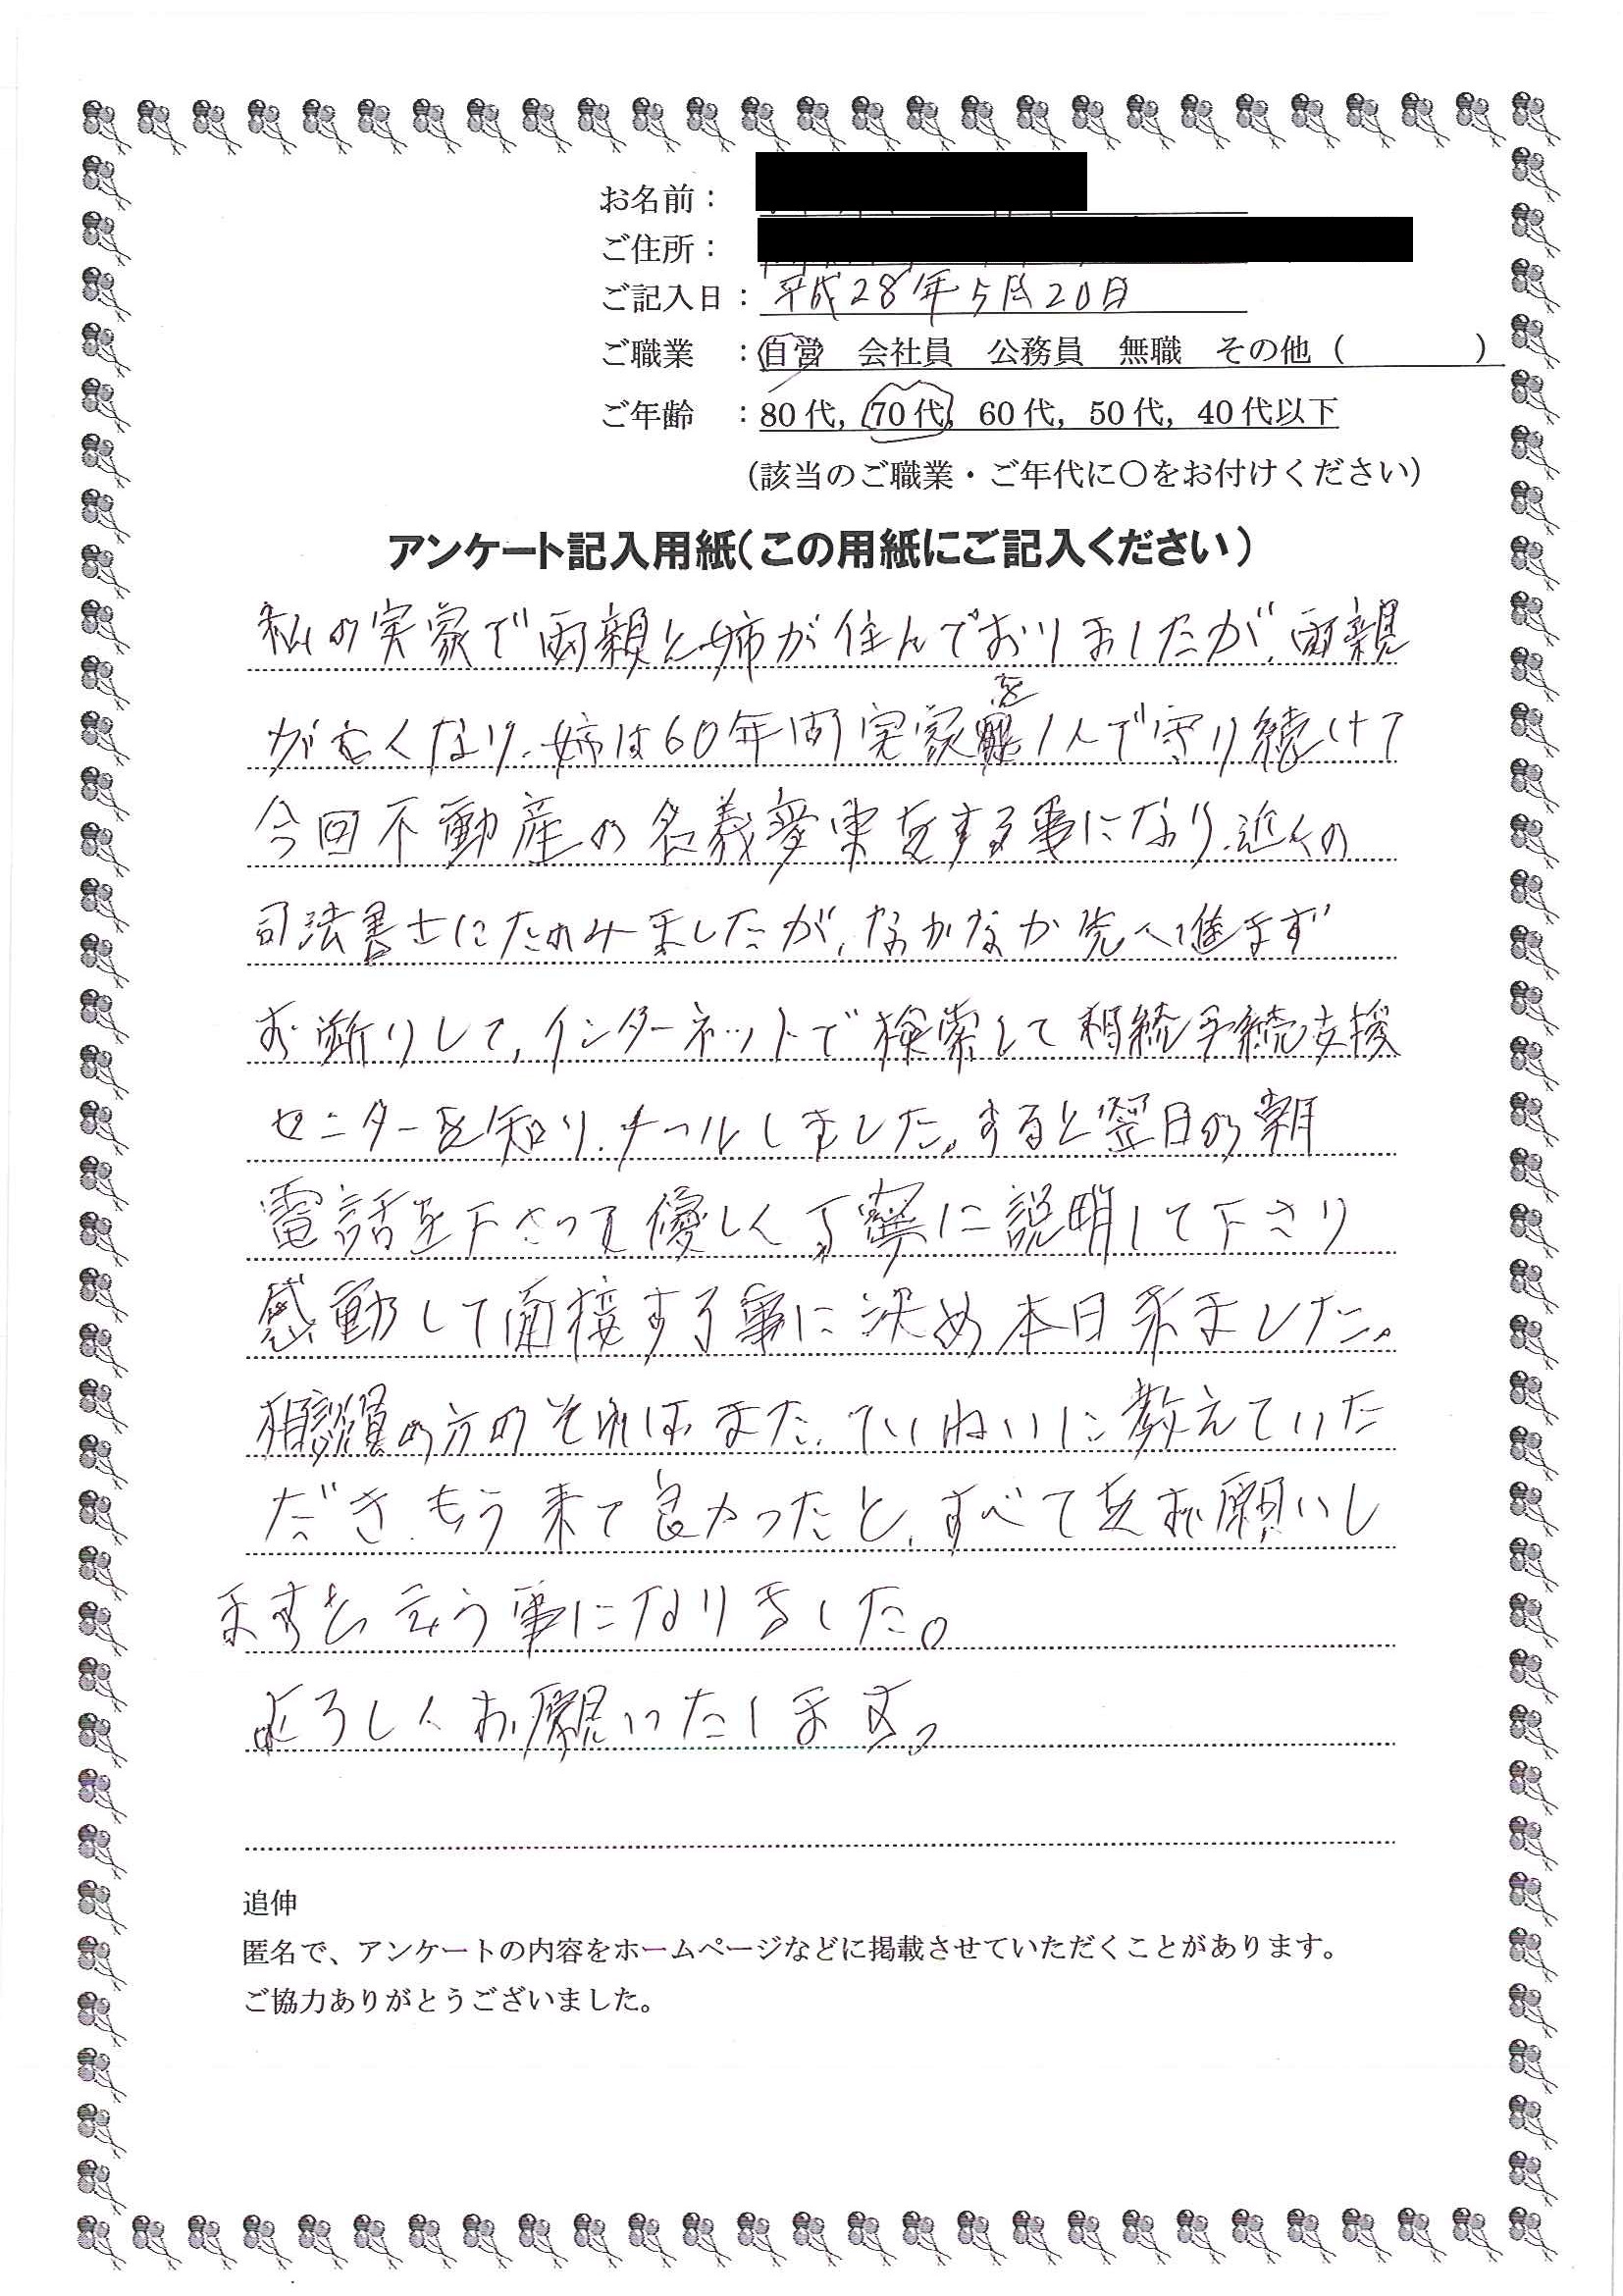 お名前：
ご住所：
ご記入日：平成28年5月20日
ご職業　：自営　会社員　公務員　無職　その他（　　　　）
ご年齢　：80代，70代，60代，50代，40代以下
（該当のご職業・ご年代に〇をお付けください）
アンケート記入用紙（この用紙にご記入ください）
私の実家で両親と姉が住んでおりましたが、両親
が亡くなり、姉は60年間実家を1人で守り続けて
今回不動産の名義変更をする事になり、近くの
司法書士にたのみましたが、なかなか先へ進まず
お断りして、インターネットで検索して相続手続支援
センターを知り、メールしました。すると翌日の朝
電話を下さって優しく丁寧に説明して下さり
感動して面接する事に決め本日来ました。
相談員の方のそれはまた、ていねいに教えていた
だき、もう来て良かったと、すべてをお願いし
ますと云う事になりました。
よろしくお願いたします。
追伸
匿名で、アンケートの内容をホームページなどに掲載させていただくことがあります。
ご協力ありがとうございました。